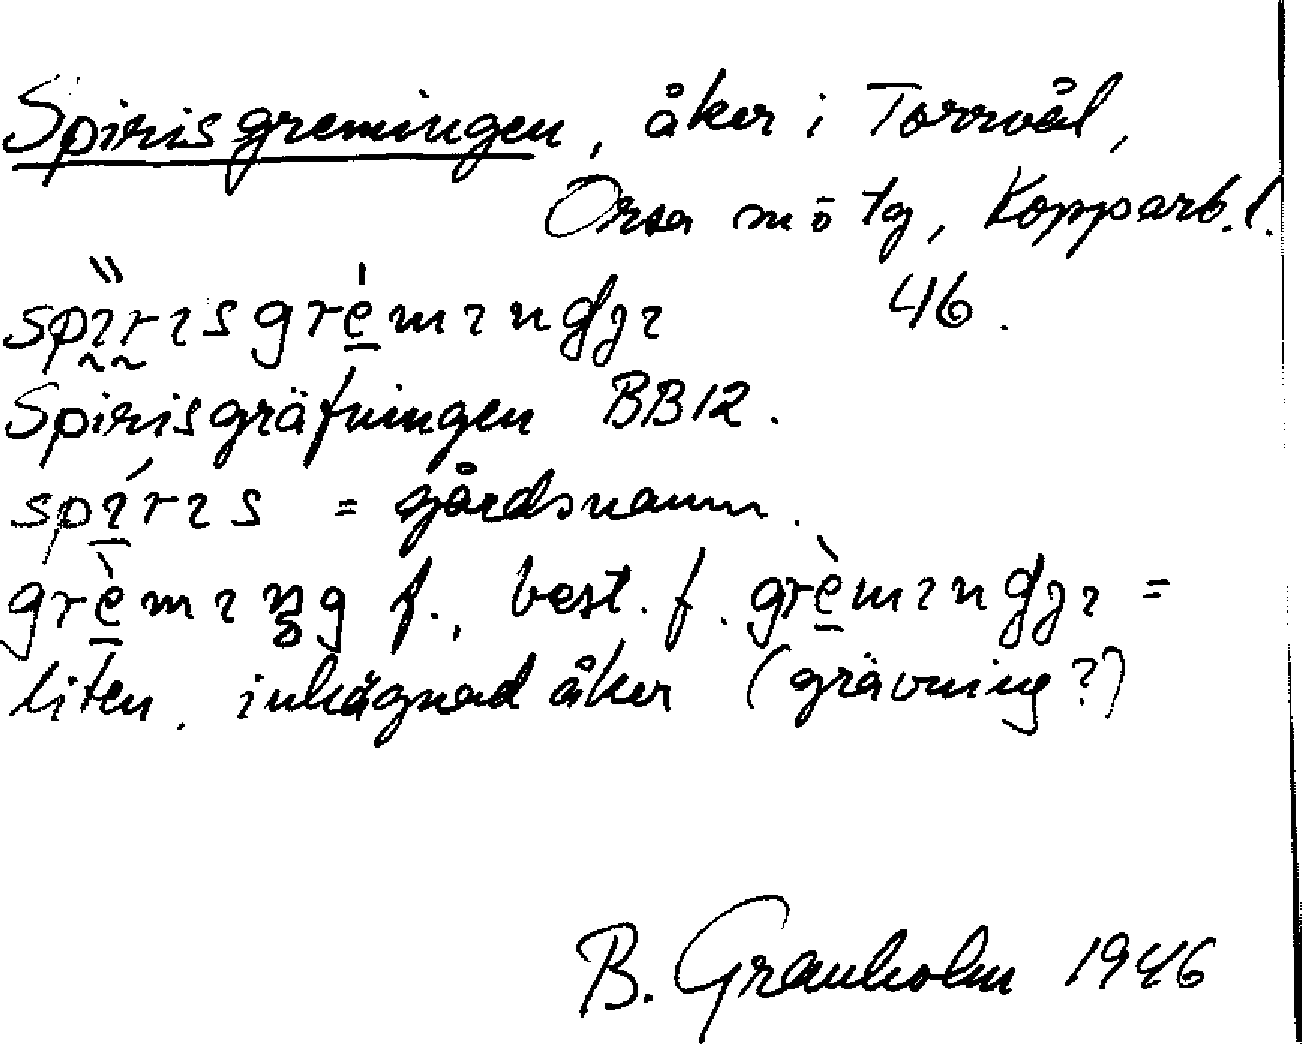 Spirisgremingen, åker i Torrvål,
Orsa m ö tg, Kopparb. l.
spɪ̀rɪsgrémɪnʤɪ 46.
Spirisgräfningen BB12.
spɪ́rɪs = gårdsnamn.
grèmɪŋg f., best. f. grèmɪnʤɪ =
liten inhägnad åker (grävning?)
B. Granholm 1946